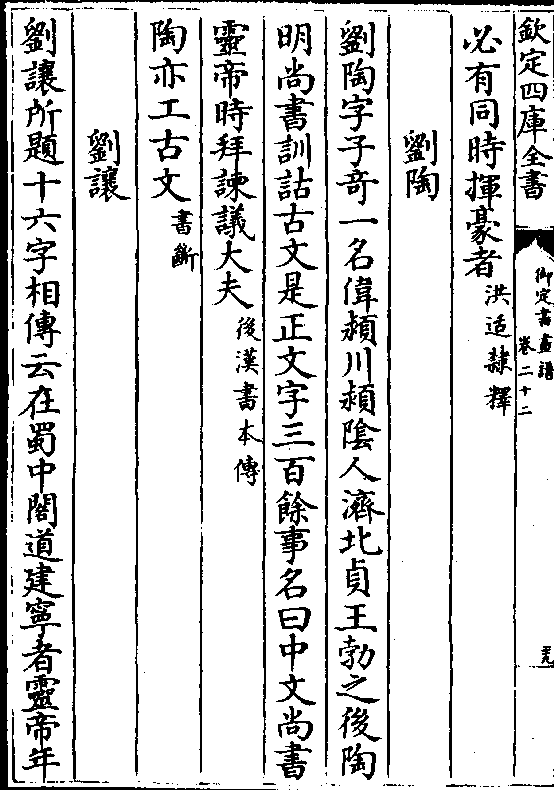 欽定四庫全書
御定書畫譜
卷二十二
必有同時揮豪者洪适隸釋
劉陶
劉陶字子奇一名偉潁川潁陰人濟北貞王勃之後陶
明尚書訓詁古文是正文字三百餘事名曰中文尚書
靈帝時拜諫議大夫後漢書本傳
陶亦工古文書斷
劉讓
劉讓所題十六字相傳云在蜀中閣道建寧者靈帝年